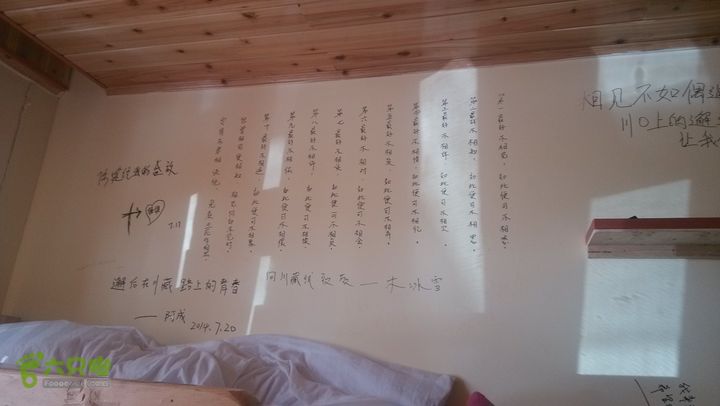 相见不如偶遇
川口上的邂
让我
第一最好不相见,如此便可不相恋。
第二最好不相知,如此便可不相思。
第三最好不相伴,如此便可不相欠。
第四最好不相惜,如此便可不相忆。
第五最好不相爱,如此便可不相弃。
第六最好不相对,如此便可不相会。
第七最好不相误,如此便可不相负。
第八最好不相许,如此便可不相续。
第九最好不相依,如此便可不相偎。
第十最好不相遇,如此便可不相聚。
但曾相见便相知,相见何如不见时。
安得与君相决绝,免教生死作相思。
7.17
邂逅在川藏路上的青春
——阿成
2014.7.20
同川藏线
——木冰雪
六只脚